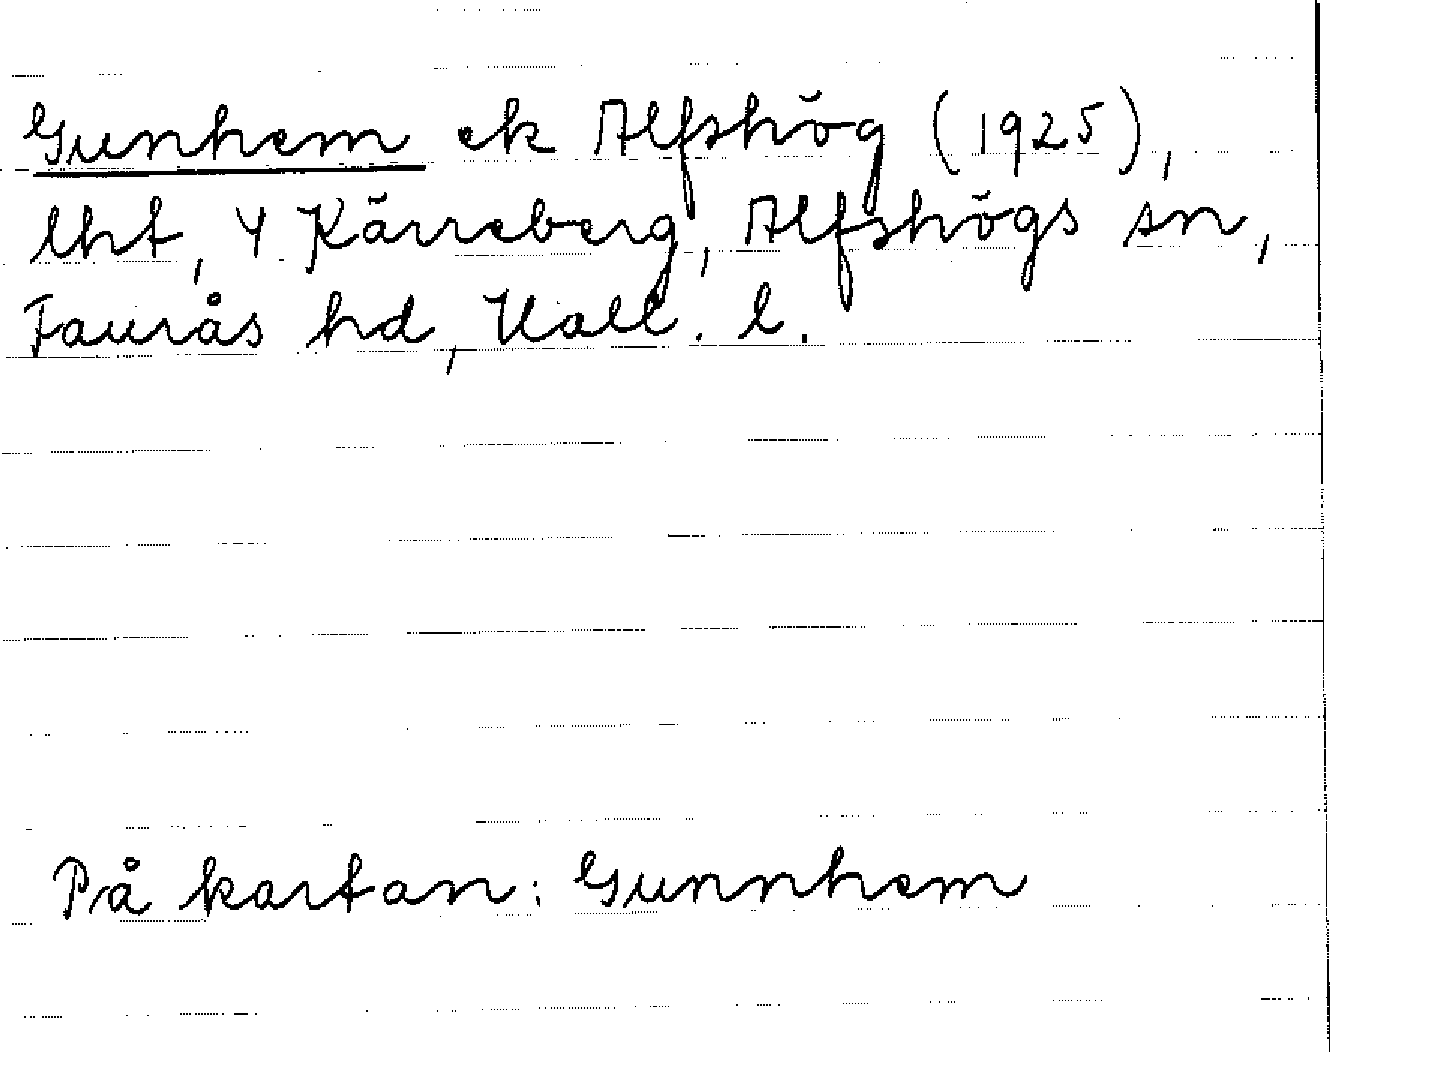 Gunhem ek Alfshög (1925),
lht, 4 Kärreberg, Alfshögs sn,
Faurås hd, Hall. l.
På kartan: Gunnhem